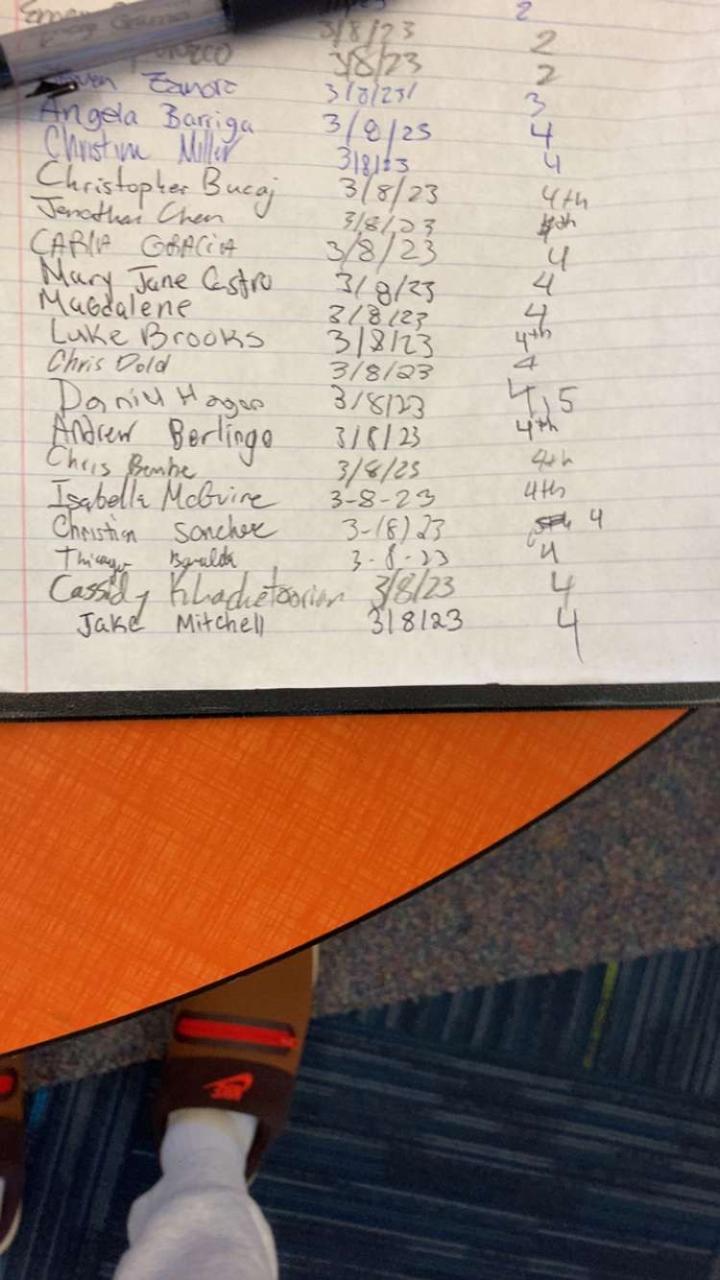 2
3/8/23 2
3/8/23 2
3/8/23 3
Angela Barriga 3/8/23 4
Christina Miller 3/8/23 4
Christopher Bucaj 3/8/23 4th
Jonathan Chen 3/8/23 4th
CARLA GRACIA 3/8/23 4
Mary Jane Castro 3/8/23 4
Magdalene 3/8/23 4
Luke Brooks 3/8/23 4th
Chris Dold 3/8/23 4
Daniel Hagan 3/8/23 4,5
Andrew Berlingo 3/8/23 4th
Chris 3/8/23 4th
Isabella McGuire 3-8-23 4th
Christian Sanchez 3-(8)23 4
3-8-23 4
Cassidy Khachetoorian 3/8/23 4
Jake Mitchell 3/8/23 4